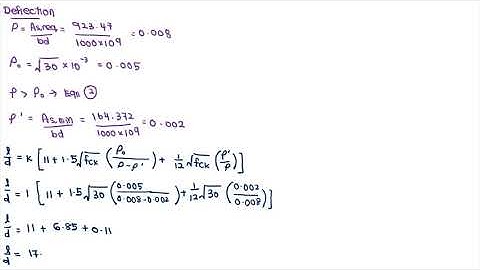 Deflection
ρ = As,req / bd = 923.47 / 1000×109 = 0.008
ρ₀ = √30 × 10⁻³ = 0.005
ρ > ρ₀ → Eqn ②
ρ' = As,min / bd = 164.372 / 1000×109 = 0.002
l/d = K [11 + 1.5√fck (ρ₀ / ρ-ρ') + 1/12 √fck (ρ'/ρ)]
l/d = 1 [11 + 1.5√30 (0.005 / 0.008-0.002) + 1/12 √30 (0.002 / 0.008)]
l/d = 11 + 6.85 + 0.11
l/d = 17.